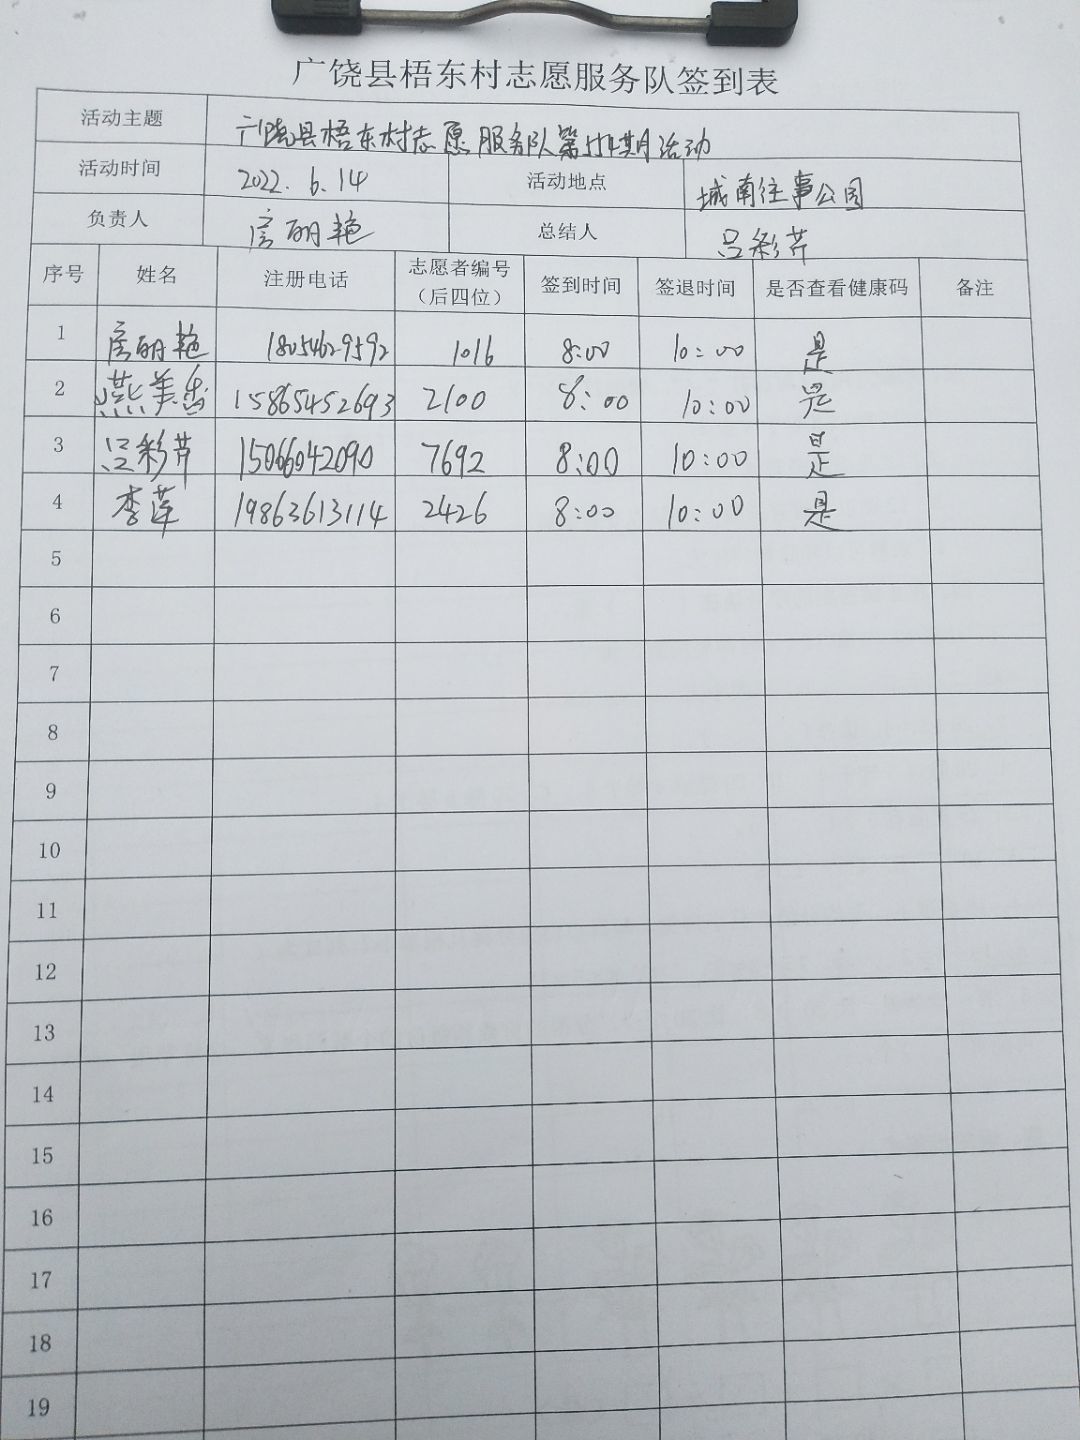 广饶县梧东村志愿服务队签到表
活动主题 广饶县梧东村志愿服务队第554期活动
活动时间 2022.6.14 活动地点 城南往事公园
负责人 房丽艳 总结人 吕彩芹
序号 姓名 注册电话 志愿者编号（后四位） 签到时间 签退时间 是否查看健康码 备注
1 房丽艳 18054629592 1016 8:00 10:00 是
2 燕美香 15865452693 2100 8:00 10:00 是
3 吕彩芹 15066042090 7692 8:00 10:00 是
4 李萍 19863613114 2426 8:00 10:00 是
5
6
7
8
9
10
11
12
13
14
15
16
17
18
19